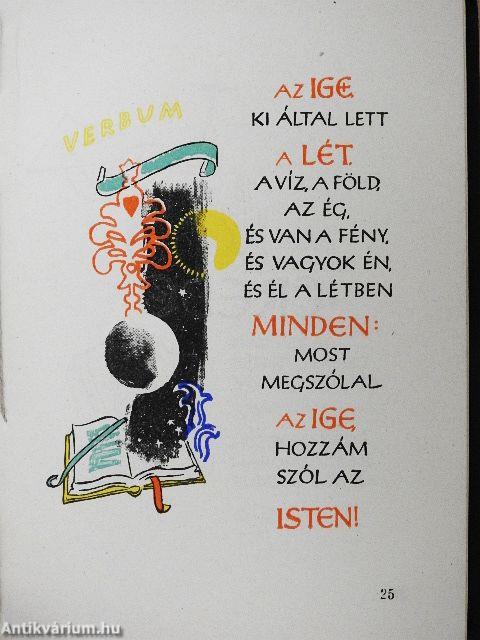 VERBUM
AZ IGE,
KI ÁLTAL LETT
A LÉT.
A VÍZ, A FÖLD,
AZ ÉG,
ÉS VAN A FÉNY,
ÉS VAGYOK ÉN,
ÉS ÉL A LÉTBEN
MINDEN:
MOST
MEGSZÓLAL
AZ IGE,
HOZZÁM
SZÓL AZ
ISTEN!
25
Antikvárium.hu